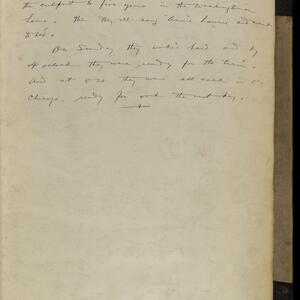 the culprit to five years in the Washingtonian
home. Then they all sang "Annie Laurie" and went
to bed.
On Sunday they worked hard and by
4 o'clock they were ready for the train.
And at 8.20 they were all back in
Chicago, ready for work the next day.